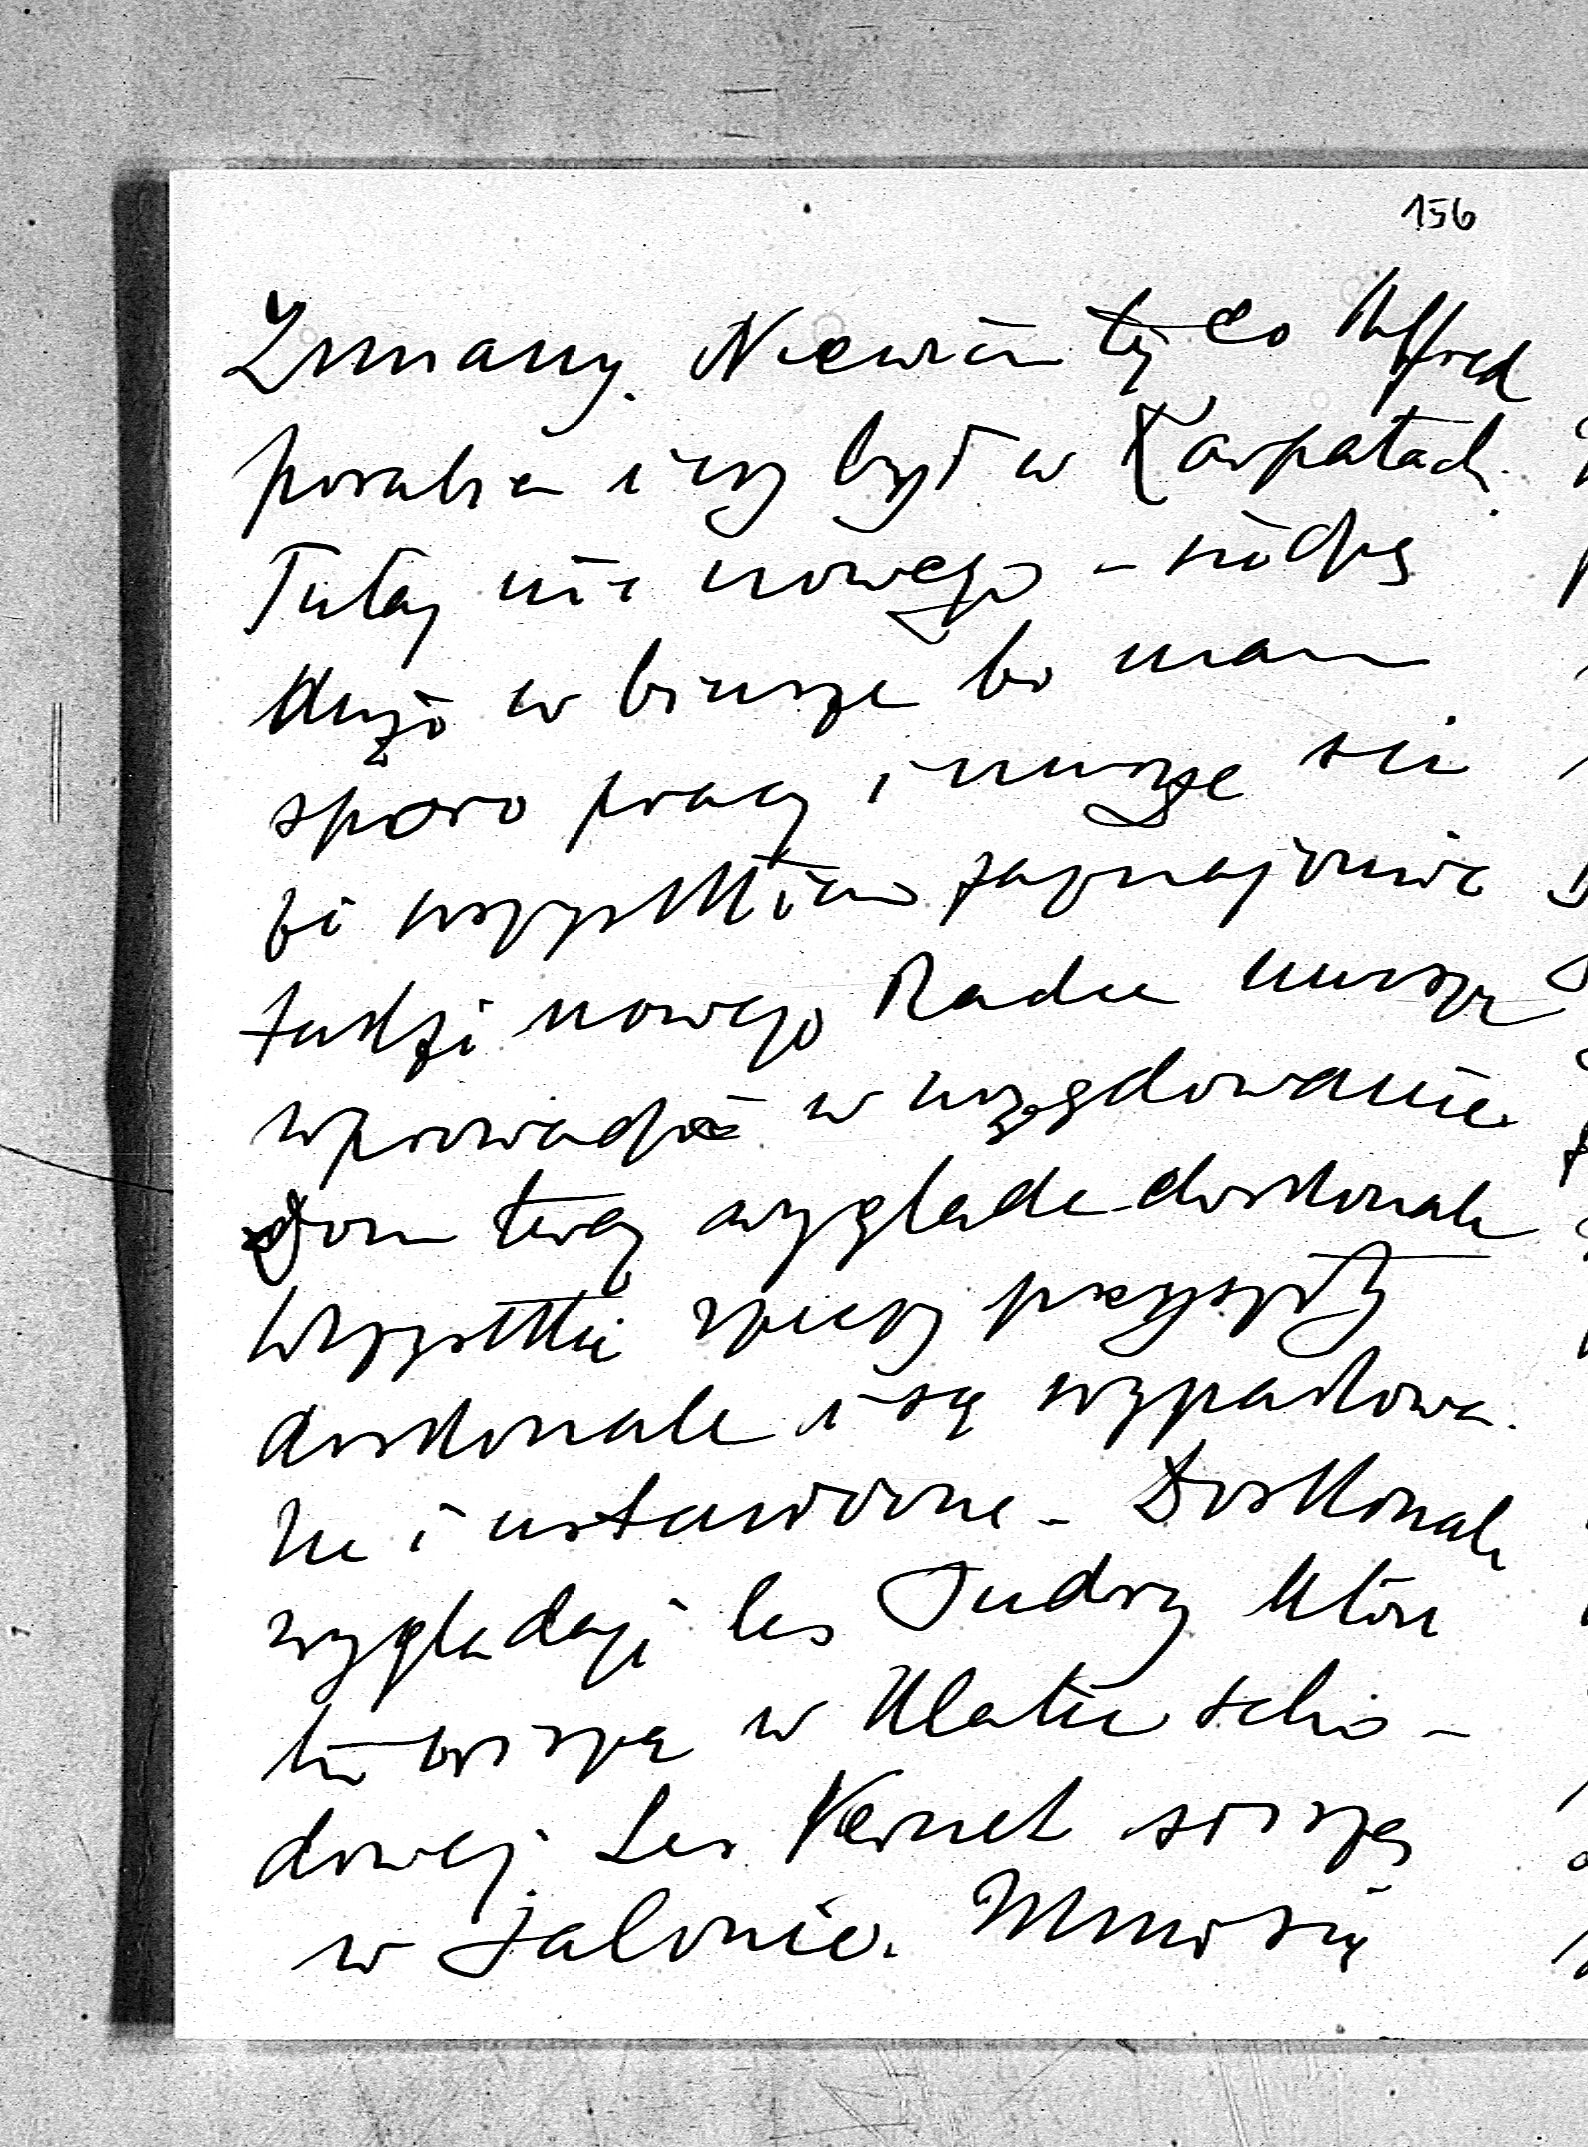 156
Zmiany. Niewiem tyż co Alfred
porabia i czy był w Karpatach.
Tutaj nic nowego – siedzę
dużo w biurze bo mam
sporo pracy i muszę się
ze wszystkiem zaznajomić
tudzież nowego Radcę muszę
wprowadzić w urzędowanie
Dom twój wygląda doskonale
Wszystkie rzeczy przyszły
doskonale i są wypakowa-
ne i ustawione – Doskonale
wyglądają les Tudry które
tu wiszą w klatce scho-
dowej. Les Vernet wiszą
w salonie. Mnie się